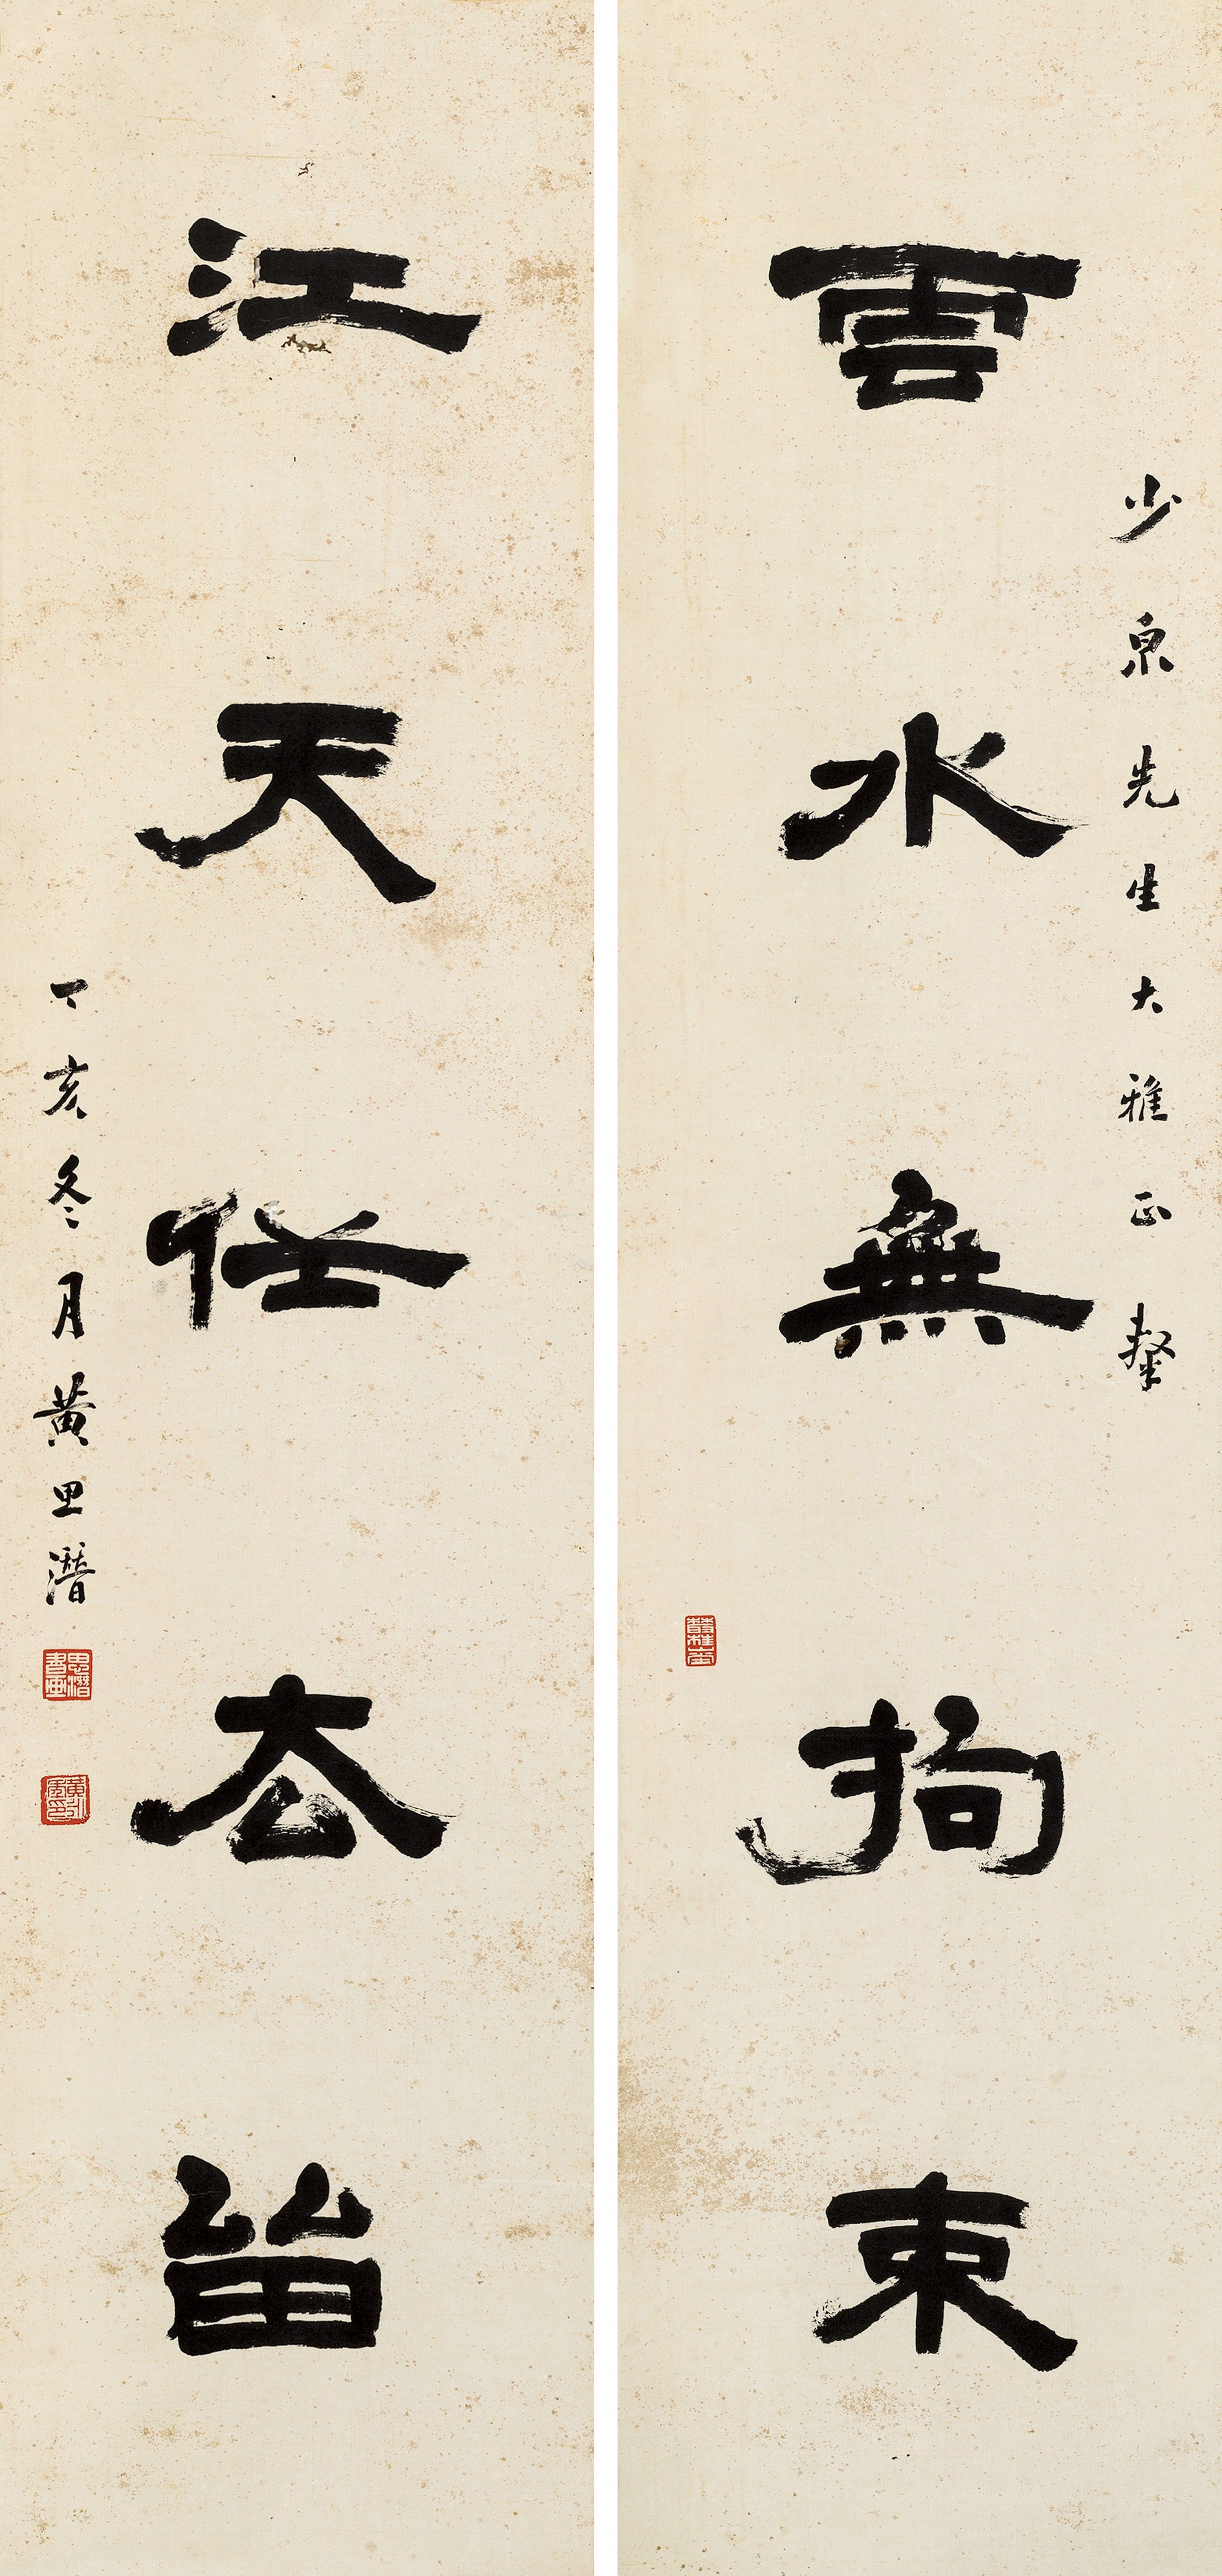 雲水無拘束
少泉先生大雅正
江天任去留
丁亥冬月黃思潛
思潛書畫